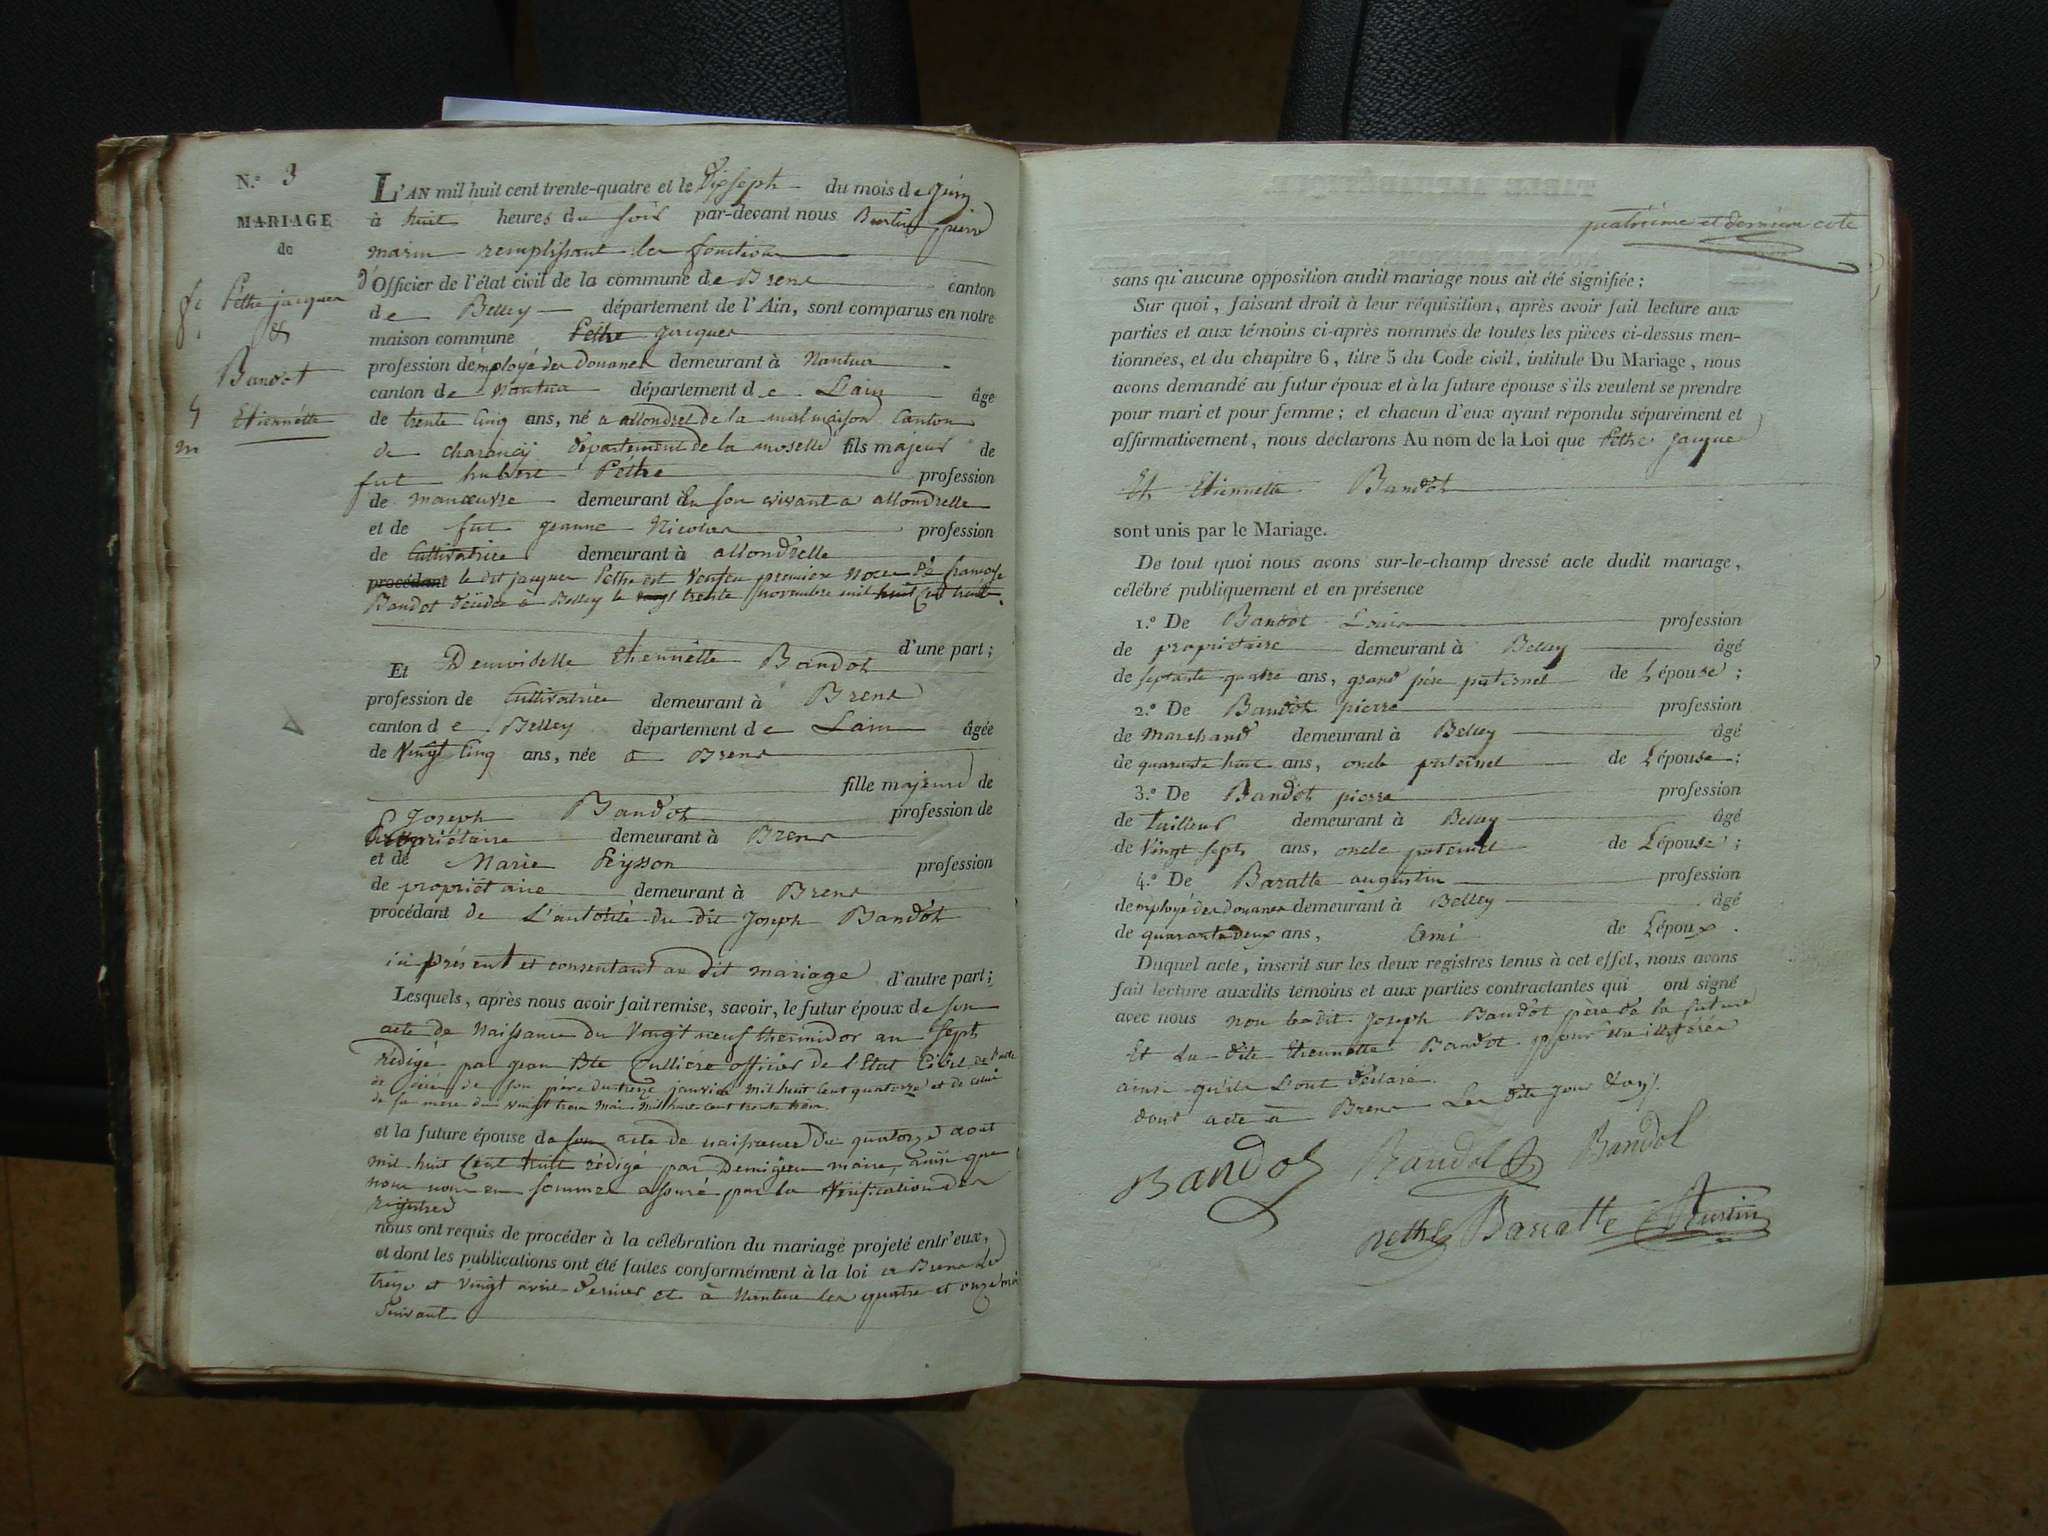 N.º 3
MARIAGE
de
Pethe jacques
&
Bandot
Etiennette
L'AN mil huit cent trente-quatre et le Dixsept du mois de juin
à huit heures du soir par-devant nous pierre
maire remplissant les fonctions
d'Officier de l'état civil de la commune de Brens canton
de Belley département de l'Ain, sont comparus en notre
maison commune Pethe jacques
profession d'employé des Douanes demeurant à Nantua
canton de Nantua département de Lain âgé
de trente cinq ans, né a allondrel de la malmaison Canton
de charancÿ département de la moselle fils majeur de
fut hubert Pethe profession
de manœuvre demeurant en son vivant a allondrelle
et de fut jeanne Nicolas profession
de Cultivatrice demeurant à allondrelle
procédant le dit jacques Pethe est Veuf en première Noce de françoise
Bandot décédée à Belley le trente novembre mil huit cent trente
d'une part;
Et Demoiselle Etiennette Bandot
profession de Cultivatrice demeurant à Brens
canton de Belley département de Lain âgée
de Vingt Cinq ans, née a Brens
fille majeure de
Joseph Bandot profession de
Propriétaire demeurant à Brens
et de Marie Peysson profession
de propriétaire demeurant à Brens
procédant de L'autorité du dit Joseph Bandot
ici présent et consentant au dit mariage d'autre part;
Lesquels, après nous avoir fait remise, savoir, le futur époux de son
acte de Naissance du Vingt neuf thermidor an sept
rédigé par jean Bte Cullière officier de l'Etat Civil de l'acte
de décè de son père du treize janvier mil huit cent quatorze et de celui
de sa mere du vingt trois mai mil huit cent trente trois
et la future épouse de son acte de naissance du quatorze aout
mil huit cent huit rédigé par maire, ainsi que
nous nous en sommes assuré par la Vérification des
registres
nous ont requis de procéder à la célébration du mariage projeté entr'eux,
et dont les publications ont été faites conformément à la loi a Brens le
treize et vingt avril dernier et à Nantua les quatre et onze mai
Suivant
quatrième et dernière cote
sans qu'aucune opposition audit mariage nous ait été signifiée;
Sur quoi, faisant droit à leur réquisition, après avoir fait lecture aux
parties et aux témoins ci-après nommés de toutes les pièces ci-dessus men-
tionnées, et du chapitre 6, titre 5 du Code civil, intitulé Du Mariage, nous
avons demandé au futur époux et à la future épouse s'ils veulent se prendre
pour mari et pour femme; et chacun d'eux ayant répondu séparément et
affirmativement, nous déclarons Au nom de la Loi que Pethe jacques
Et Etiennette Bandot
sont unis par le Mariage.
De tout quoi nous avons sur-le-champ dressé acte dudit mariage,
célébré publiquement et en présence
1.º De Bandot Louis profession
de propriétaire demeurant à Belley âgé
de septante quatre ans, grand père paternel de Lépouse;
2.º De Bandot pierre profession
de Marchand demeurant à Belley âgé
de quarante huit ans, oncle paternel de Lépouse;
3.º De Bandot pierre profession
de tailleur demeurant à Belley âgé
de Vingt sept ans, oncle paternel de Lépouse;
4.º De Baratte augustin profession
d'employé des Douanes demeurant à Belley âgé
de quarante deux ans, ami de Lépoux.
Duquel acte, inscrit sur les deux registres tenus à cet effet, nous avons
fait lecture auxdits témoins et aux parties contractantes qui ont signé
avec nous non ledit Joseph Bandot père de la future
Et La dite Etiennette Bandot pour être illitérés
ainsi qu'ils L'ont déclaré.
dont acte à Brens Les dits jour d'an.
Bandot Bandot Bandot
pethe Barratte